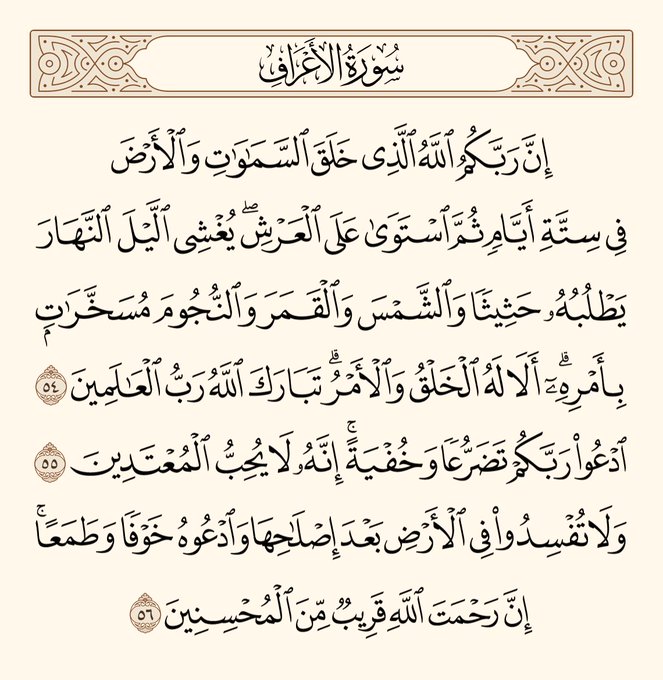 سُورَةُ الأَعْرَافِ
إِنَّ رَبَّكُمُ ٱللَّهُ ٱلَّذِى خَلَقَ ٱلسَّمَٰوَٰتِ وَٱلْأَرْضَ
فِى سِتَّةِ أَيَّامٍ ثُمَّ ٱسْتَوَىٰ عَلَى ٱلْعَرْشِۖ يُغْشِى ٱلَّيْلَ ٱلنَّهَارَ
يَطْلُبُهُۥ حَثِيثًا وَٱلشَّمْسَ وَٱلْقَمَرَ وَٱلنُّجُومَ مُسَخَّرَٰتٍۭ
بِأَمْرِهِۦٓۗ أَلَا لَهُ ٱلْخَلْقُ وَٱلْأَمْرُۗ تَبَارَكَ ٱللَّهُ رَبُّ ٱلْعَٰلَمِينَ ٥٤
ٱدْعُوا۟ رَبَّكُمْ تَضَرُّعًا وَخُفْيَةًۚ إِنَّهُۥ لَا يُحِبُّ ٱلْمُعْتَدِينَ ٥٥
وَلَا تُفْسِدُوا۟ فِى ٱلْأَرْضِ بَعْدَ إِصْلَٰحِهَا وَٱدْعُوهُ خَوْفًا وَطَمَعًاۚ
إِنَّ رَحْمَتَ ٱللَّهِ قَرِيبٌ مِّنَ ٱلْمُحْسِنِينَ ٥٦